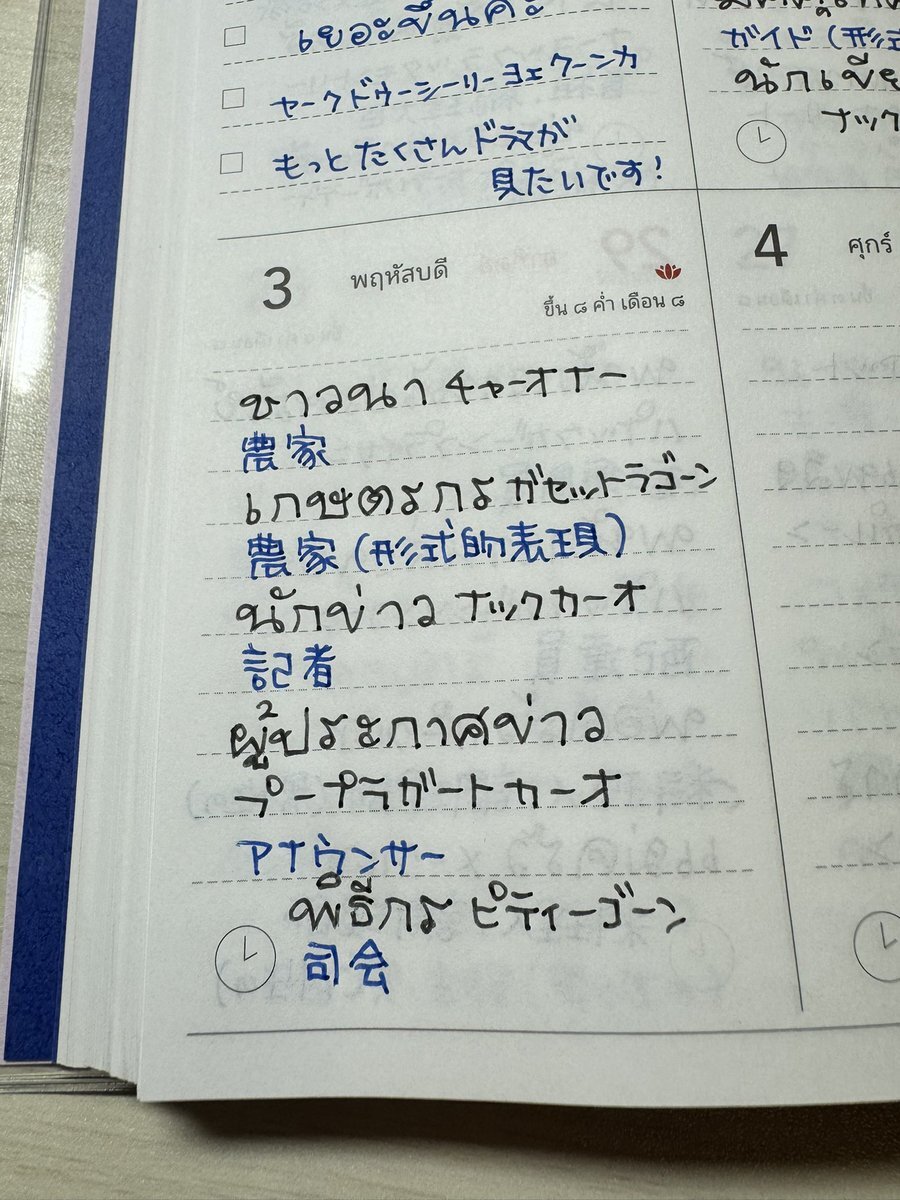 เยอะขึ้นค่ะ
ヤーク ドゥーシーリー ヨェ クーンカ
もっとたくさんドラマが
見たいです!
ガイド(形式
นักเขีย
ナック
3 พฤหัสบดี
ขึ้น ๘ ค่ำ เดือน ๘
ชาวนา チャーオナー
農家
เกษตรกร ガセットラゴーン
農家(形式的表現)
นักข่าว ナックカーオ
記者
ผู้ประกาศข่าว
プープラガートカーオ
アナウンサー
พิธีกร ピティーゴーン
司会
4 ศุกร์